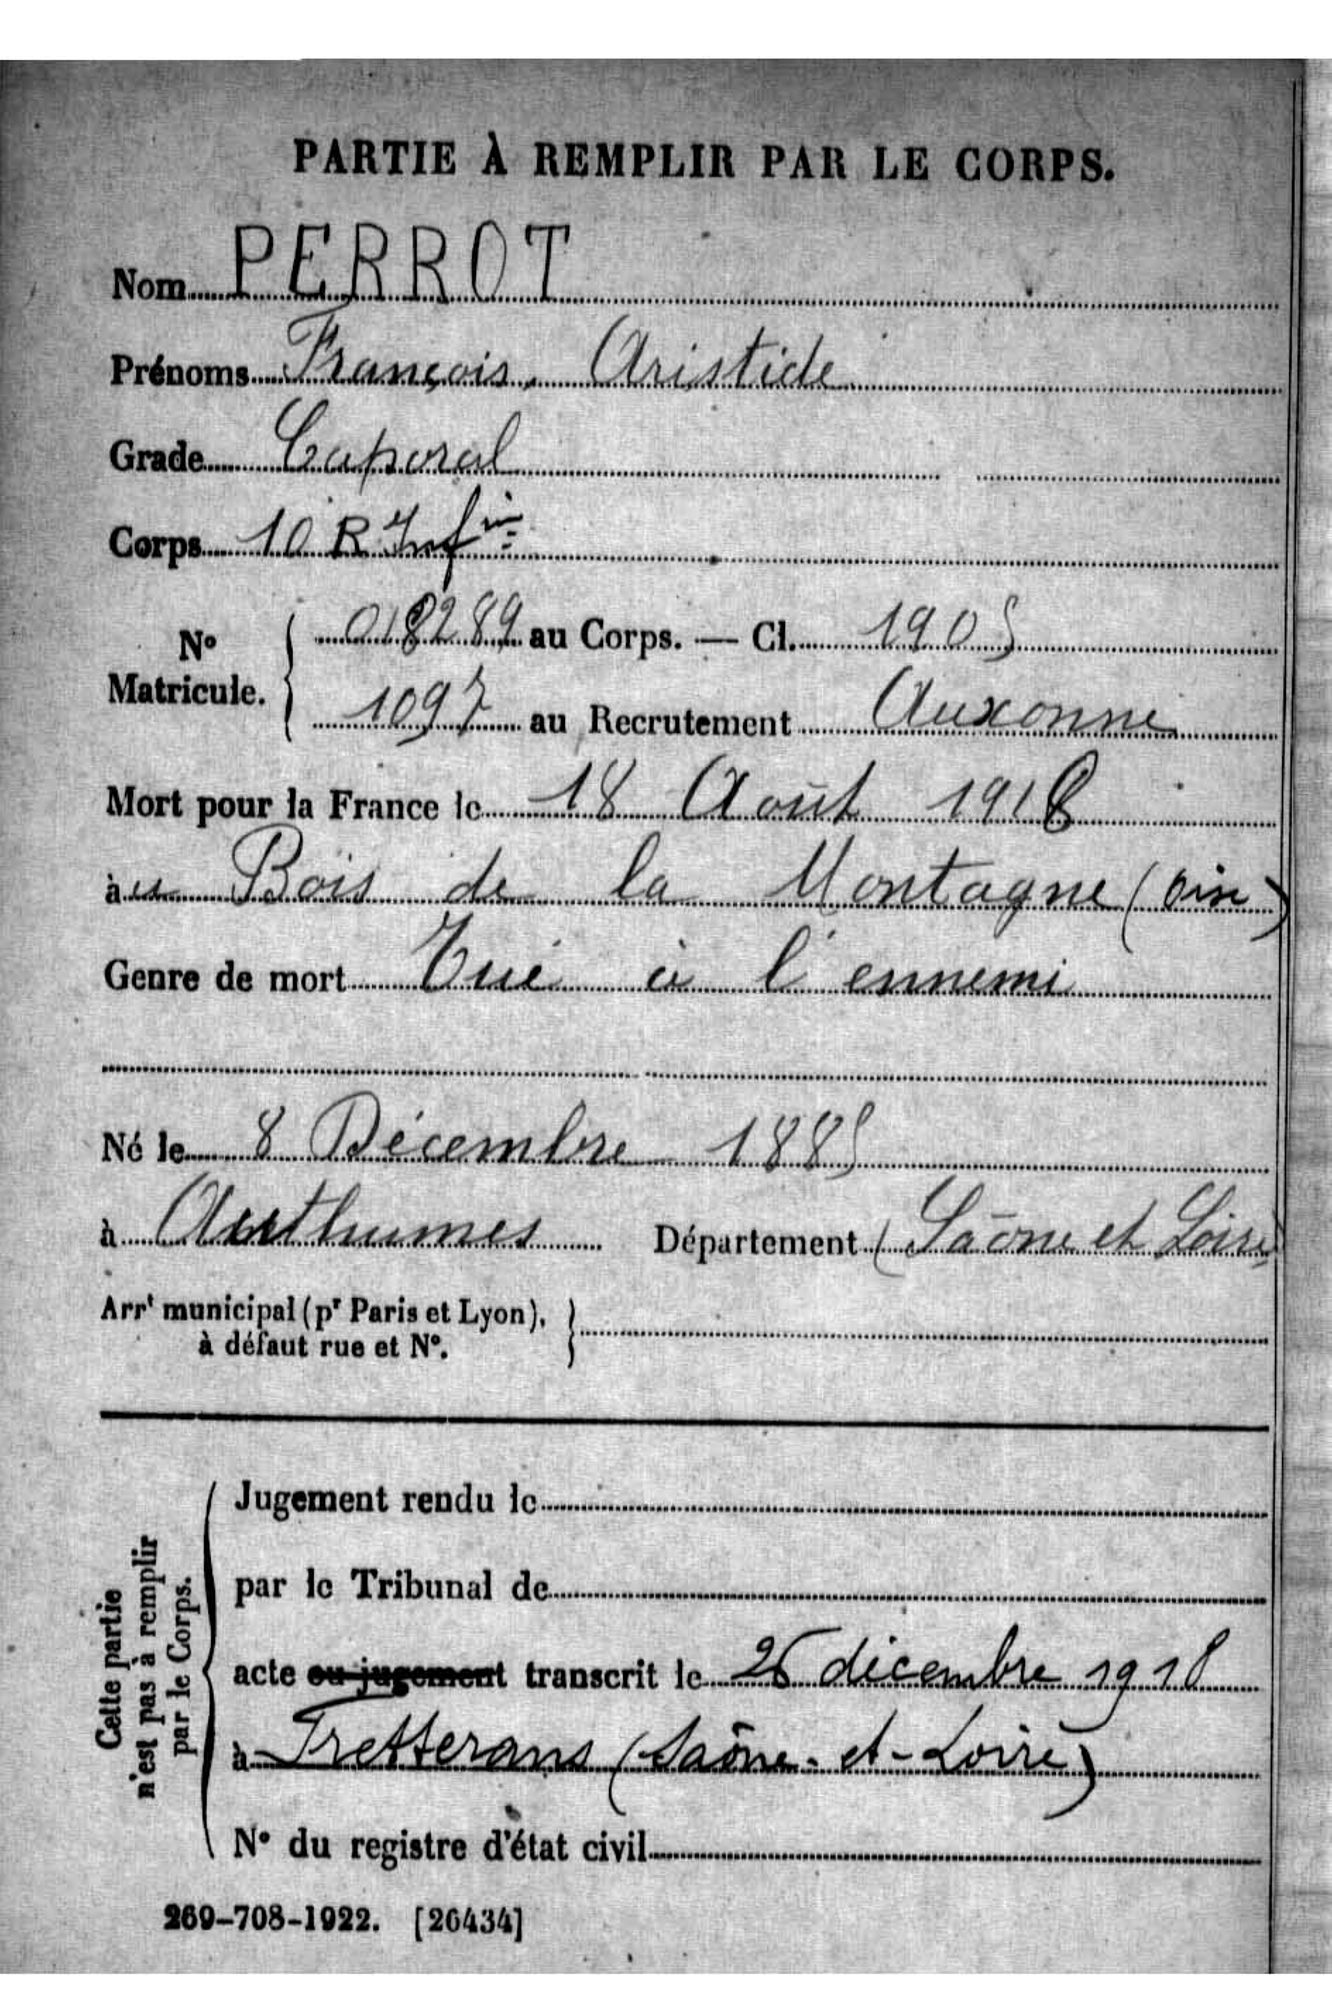 PARTIE À REMPLIR PAR LE CORPS.
Nom PERROT
Prénoms François, Aristide
Grade Caporal
Corps 10 R Infie
No Matricule. { 018289 au Corps. — Cl. 1905
1097 au Recrutement Auxonne
Mort pour la France le 18 Août 1918
au Bois de la Montagne (Oise)
Genre de mort Tué à l'ennemi
Né le 8 Décembre 1885
à Authumes Département (Saône et Loire)
Arrt municipal (pr Paris et Lyon), }
à défaut rue et No.
Cette partie
n'est pas à remplir
par le Corps.
Jugement rendu le
par le Tribunal de
acte ou jugement transcrit le 26 décembre 1918
à Fretterans (Saône-et-Loire)
No du registre d'état civil
269-708-1922. [26434]